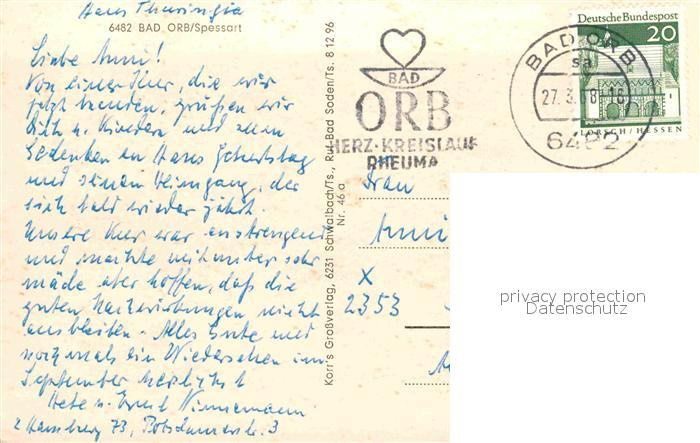 Haus Thuringia
6482 BAD ORB/Spessart
Liebe Anni!
Von einer Kur, die wir
jetzt beenden, grüßen wir
Dich u. Kindern und
Gedenken an Hans Geburtstag
und seinen Heimgang, der
sich bald wieder jährt.
Unsere Kur war anstrengend
und machte mitunter sehr
müde aber hoffen, daß die
guten Nachwirkungen nicht
ausbleiben. Alles Gute und
nochmals ein Wiedersehen im
September herzlichst
u. Ernst
2 Hamburg 73, Potsdamerstr. 3
Korr's Großverlag, 6231 Schwalbach/Ts., Ruf Bad Soden/Ts. 8 12 96
Nr. 46 a
BAD
ORB
HERZ-KREISLAUF
RHEUMA
BAD ORB
sa
27.3.68-16
6482
Deutsche Bundespost
20
LORSCH/HESSEN
Frau
Anni
X
2353
privacy protection
Datenschutz